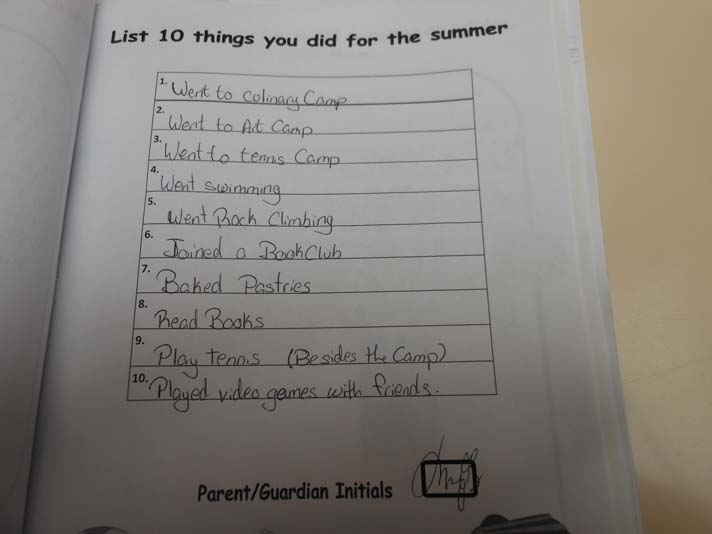 List 10 things you did for the summer
1. Went to Colinary Camp
2. Went to Art Camp
3. Went to tennis Camp
4. Went swimming
5. Went Rock Climbing
6. Joined a Book Club
7. Baked Pastries
8. Read Books
9. Play tennis (Besides the Camp)
10. Played video games with friends.
Parent/Guardian Initials